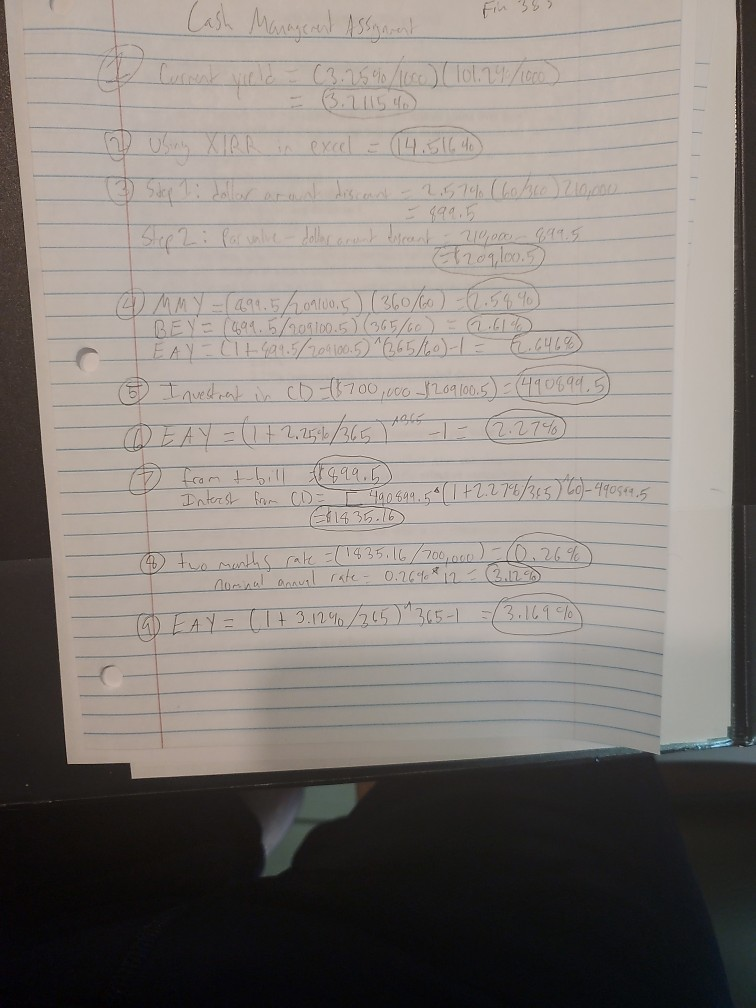 Cash Management Assignment
Fin 353
1 Current yield = (3.25%/1000)(101.24%/1000)
= 3.2115%
2 Using XIRR in excel = 14.516%
3 Step 1: dollar amount discount = 2.57% (60/360) 210,000
= 899.5
Step 2: Par value - dollar amount discount = 210,000 - 899.5
= $209,100.5
4 MMY = (899.5/209100.5)(360/60) = 2.58%
BEY = (899.5/209100.5)(365/60) = 2.61%
EAY = (1+899.5/209100.5)^(365/60)-1 = 2.646%
5 Investment in CD = ($700,000 - $209100.5) = 490899.5
6 EAY = (1+2.25%/365)^365 -1 = 2.27%
7 from t-bill = $899.5
Interest from CD = [490899.5*(1+2.27%/365)^60)-490899.5
= $1835.16
8 two months rate = (1835.16/700,000) = 0.26%
nominal annual rate = 0.26% * 12 = 3.12%
9 EAY = (1+3.12%/365)^365-1 = 3.169%